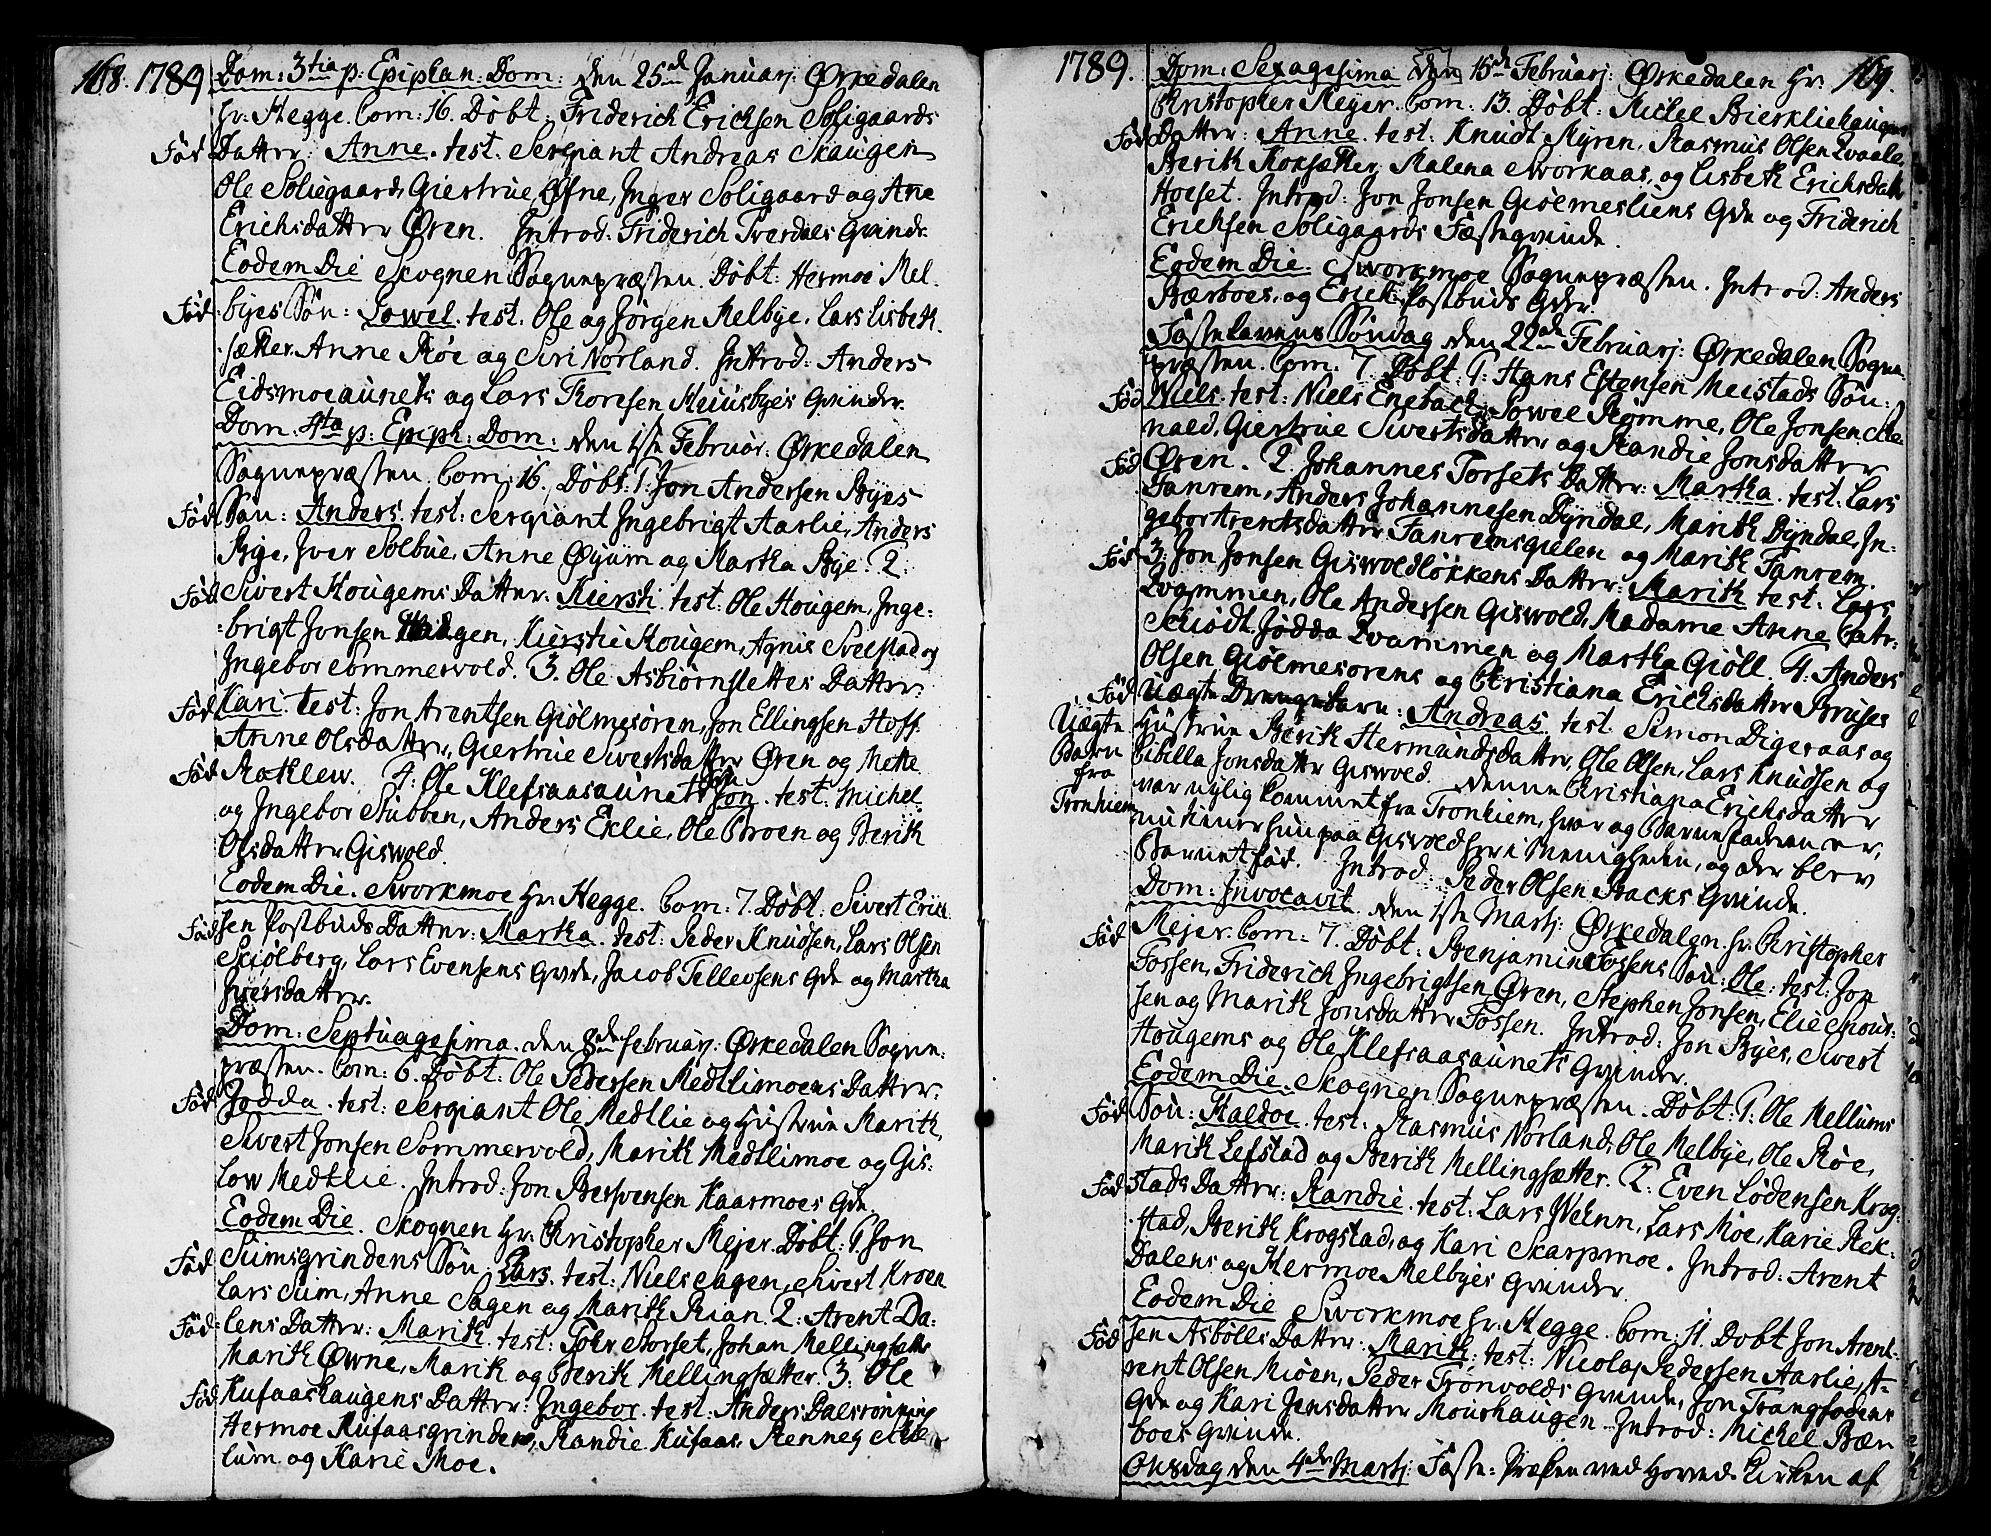 168. 1789 Dom: 3tia p: Epiphan: Dom: den 25de Januarj: Ørkedalen
hr: Hegge. Com: 16. Døbt: Friderich Erichsen Soligaards
Fød Datter: Anne. test. Sergiant Andreas Skaugen
Ole Soliegaard, Giertrue Øfne, Inger Soligaard og Ane
Erichsdatter Øren. Introd: Friderich Tverdals Qvinde.
Eodem Die Skognen Sognepræsten. Døbt: Hermoe Mel-
Fød byes Søn: Powel. test. Ole og Jørgen Melbye, Lars Lisbeth
sæther Anne Røe og Siri Norland. Introd: Anders
Eidsmoeaunets og Lars Thoresen Huusbyes Qvinder.
Dom: 4ta p: Epiph: Dom: den 1ste Februar: Ørkedalen
Sognepræsten. Com: 16. Døbt: 1. Jon Andersen Byes
Fød Søn: Anders. test: Sergiant Ingebrigt Aarlie, Anders
Bye, Iver Solbue, Anne Øyum og Martha Bye. 2.
Fød Sivert Hougems Datter: Kiersti. test: Ole Hougem, Inge-
brigt Jonsen Haugen, Kierstie Hougem, Agnis Svelstad og
Ingebor Sommervold. 3. Ole Asbiørnslettes Datter
Fød Kari. test: Jon Arentsen Giølmesøren, Jon Ellingsen Hoff
Anne Olsdatter, Giertrue Sivertsdatter Øren og Mette
Fød Rathlew. 4: Ole Klefsaasaunets Søn Jon. test: Michel
og Ingebor Stubben, Anders Eklie, Ole Broen og Berith
Olsdatter Giswold.
Eodem Die. Svorkmoe hr: Hegge. Com: 7. Døbt: Sivert Erich-
Fød sen Postbuds Datter: Martha. test: Peder Knudsen, Lars Olsen
Skiølberg, Lars Evensens Qvinde, Jacob Tellevsens Qde og Martha
Iversdatter.
Dom: Septuagesima. den 8de Februarj: Ørkedalen Sogne-
præsten. Com: 6. Døbt: Ole Pedersen Medtlimoens Datter:
Fød Jodda. test: Sergiant Ole Medtlie og Hustrue Marith,
Sivert Jonsen Sommervold, Marith Medtlimoe og Gis-
low Medtlie. Introd: Jon Bersvensen Kaarmoes Qde.
Eodem Die. Skognen Hr: Christopher Mejer. Døbt: 1. Jon
Fød Sumsgrindens Søn: Lars. test: Niels Sagen, Sivert Kroen
Lars Sum, Anne Sagen og Marith Rian. 2: Arent Da-
Fød lens Datter: Marith. test: Tohr Storset, Johan Mellingsæth
Marith Øwne, Marith og Berith Mellingsæther. 3: Ole
Fød Kufaashaugens Datter: Ingebor. test: Anders Dalsrønning
Hermoe Kufaasgrinden, Randie Kufaas, Renneg
lum og Karie Moe.
1789. Dom: Sexagesima den 15de Februarj: Ørkedalen Hr: 169.
Christopher Mejer. Com: 13. Døbt: Michel Bierkliehaugens
Fød Datter: Anne. test: Knudt Myren, Rasmus Olsen Qvaale,
Berith Koksæther, Malena Svorkaas, og Lisbeth Erichsdatter
Hoeset. Introd: Jon Jonsen Giølmesliens Qde og Friderich
Erichsen Soligaards Fæsteqvinde.
Eodem Die: Svorkmoe Sognepræsten. Introd: Anders
Bærboes, og Erich Postbuds Qder.
Fastelavens Søndag den 22de Februarj: Ørkedalen Sogne-
præsten. Com: 7. Døbt: 1. Hans Estensen Meistads Søn:
Fød Niels. test: Niels Enebach, Powel Rømme, Ole Jonsen
naed, Giertrue Sivertsdatter og Randie Jonsdatter
Fød Øren. 2 Johannes Torsets Datter: Martha. test: Lars
Fanrem, Anders Johannesen Dyndal, Marith Dyndal, In-
gebor Arentsdatter Fanremsgielen og Marith Fanrem.
Fød 3: Jon Jonsen Giswoldløkkens Datter: Marith test: Lars
Qvammen, Ole Andersen Giswold, Madame Anne Catr:
Schiødt, Jodda Qvammen og Martha Giøll. 4. Anders
Olsen Giølmesørens og Christiana Erichsdatter Bruses
Fød Uægte Drengebarn: Andreas. test. Simon Digeraas og
Uægte Barn fra Tronhiem
Hustrue Berith Hermundsdatter, Ole Olsen, Lars Knudsen og
Sibilla Jonsdatter Giswold. Denne Christiana Erichsdatter
var nylig kommet fra Tronhiem, hvor og Barnefaderen er,
nu tiener hun paa Giswold her i Menigheden, og der blev
Barnet fød. Introd: Peder Olsen Stacks Qvinde.
Dom: Invocavit. den 1ste Martj: Ørkedalen. hr: Christopher
Fød Mejer. Com: 7. Døbt: Benjamin Fossens Søn: Ole: test: Jon
Fossen, Friderich Ingebrigtsen Øren, Stephen Jonsen, Elie
sen og Marith Jonsdatter Fossen. Introd: Jon Byes, Sivert
Hougems og Ole Klefsaasaunets Qvinder.
Eodem Die. Skognen Sognepræsten. Døbt: 1. Ole Mellums
Fød Søn: Haldoe. test: Rasmus Norland, Ole Melbye, Ole Røe,
Marith Lefstad og Berith Mellingsætter. 2: Even Lødensen Krog-
Fød stads Datter: Randie. test: Lars Wenn, Lars Moe, Karie Rek-
stad, Berith Krogstad, og Kari Skarpmoe. Introd: Arent
Dalens og Hermoe Melbyes Qvinder.
Eodem Die Svorkmoe hr: Hegge. Com: 11. Døbt Jon Arent-
Fød sen Asbølls Datter: Marith: test: Nicolaj Pedersen Aarlie, A-
rent Olsen Moen, Peder Tronvolds Qvinde, Jon
Qde og Kari Jensdatter Moushaugen. Introd: Michel Bær-
boes Qvinde.
Onsdag den 4de Martj: Faste-Præken ved Hoved-Kirken af